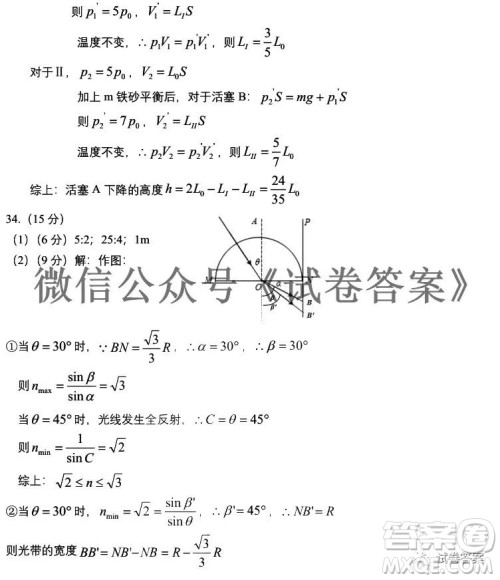 则 p₁' = 5p₀，V₁' = L_I S
温度不变，∴ p₁V₁ = p₁'V₁'，则 L_I = 3/5 L₀
对于Ⅱ，p₂ = 5p₀，V₂ = L₀S
加上 m 铁砂平衡后，对于活塞 B：p₂'S = mg + p₁'S
则 p₂' = 7p₀，V₂' = L_II S
温度不变，∴ p₂V₂ = p₂'V₂'，则 L_II = 5/7 L₀
综上：活塞 A 下降的高度 h = 2L₀ - L_I - L_II = 24/35 L₀
34.（15 分）
（1）（6 分）5:2；25:4；1m
（2）（9 分）解：作图：
A P
θ
M O α N
β B
β' B'
微信公众号《试卷答案》
①当 θ = 30° 时，∵ BN = √3/3 R，∴ α = 30°，∴ β = 60°
则 n_max = sin β / sin α = √3
当 θ = 45° 时，光线发生全反射，∴ C = θ = 45°
则 n_min = 1 / sin C = √2
综上：√2 ≤ n ≤ √3
②当 θ = 30° 时，n_min = √2 = sin β' / sin θ，∴ β' = 45°，∴ NB' = R
则光带的宽度 BB' = NB' - NB = R - √3/3 R
答案圈
试卷答案